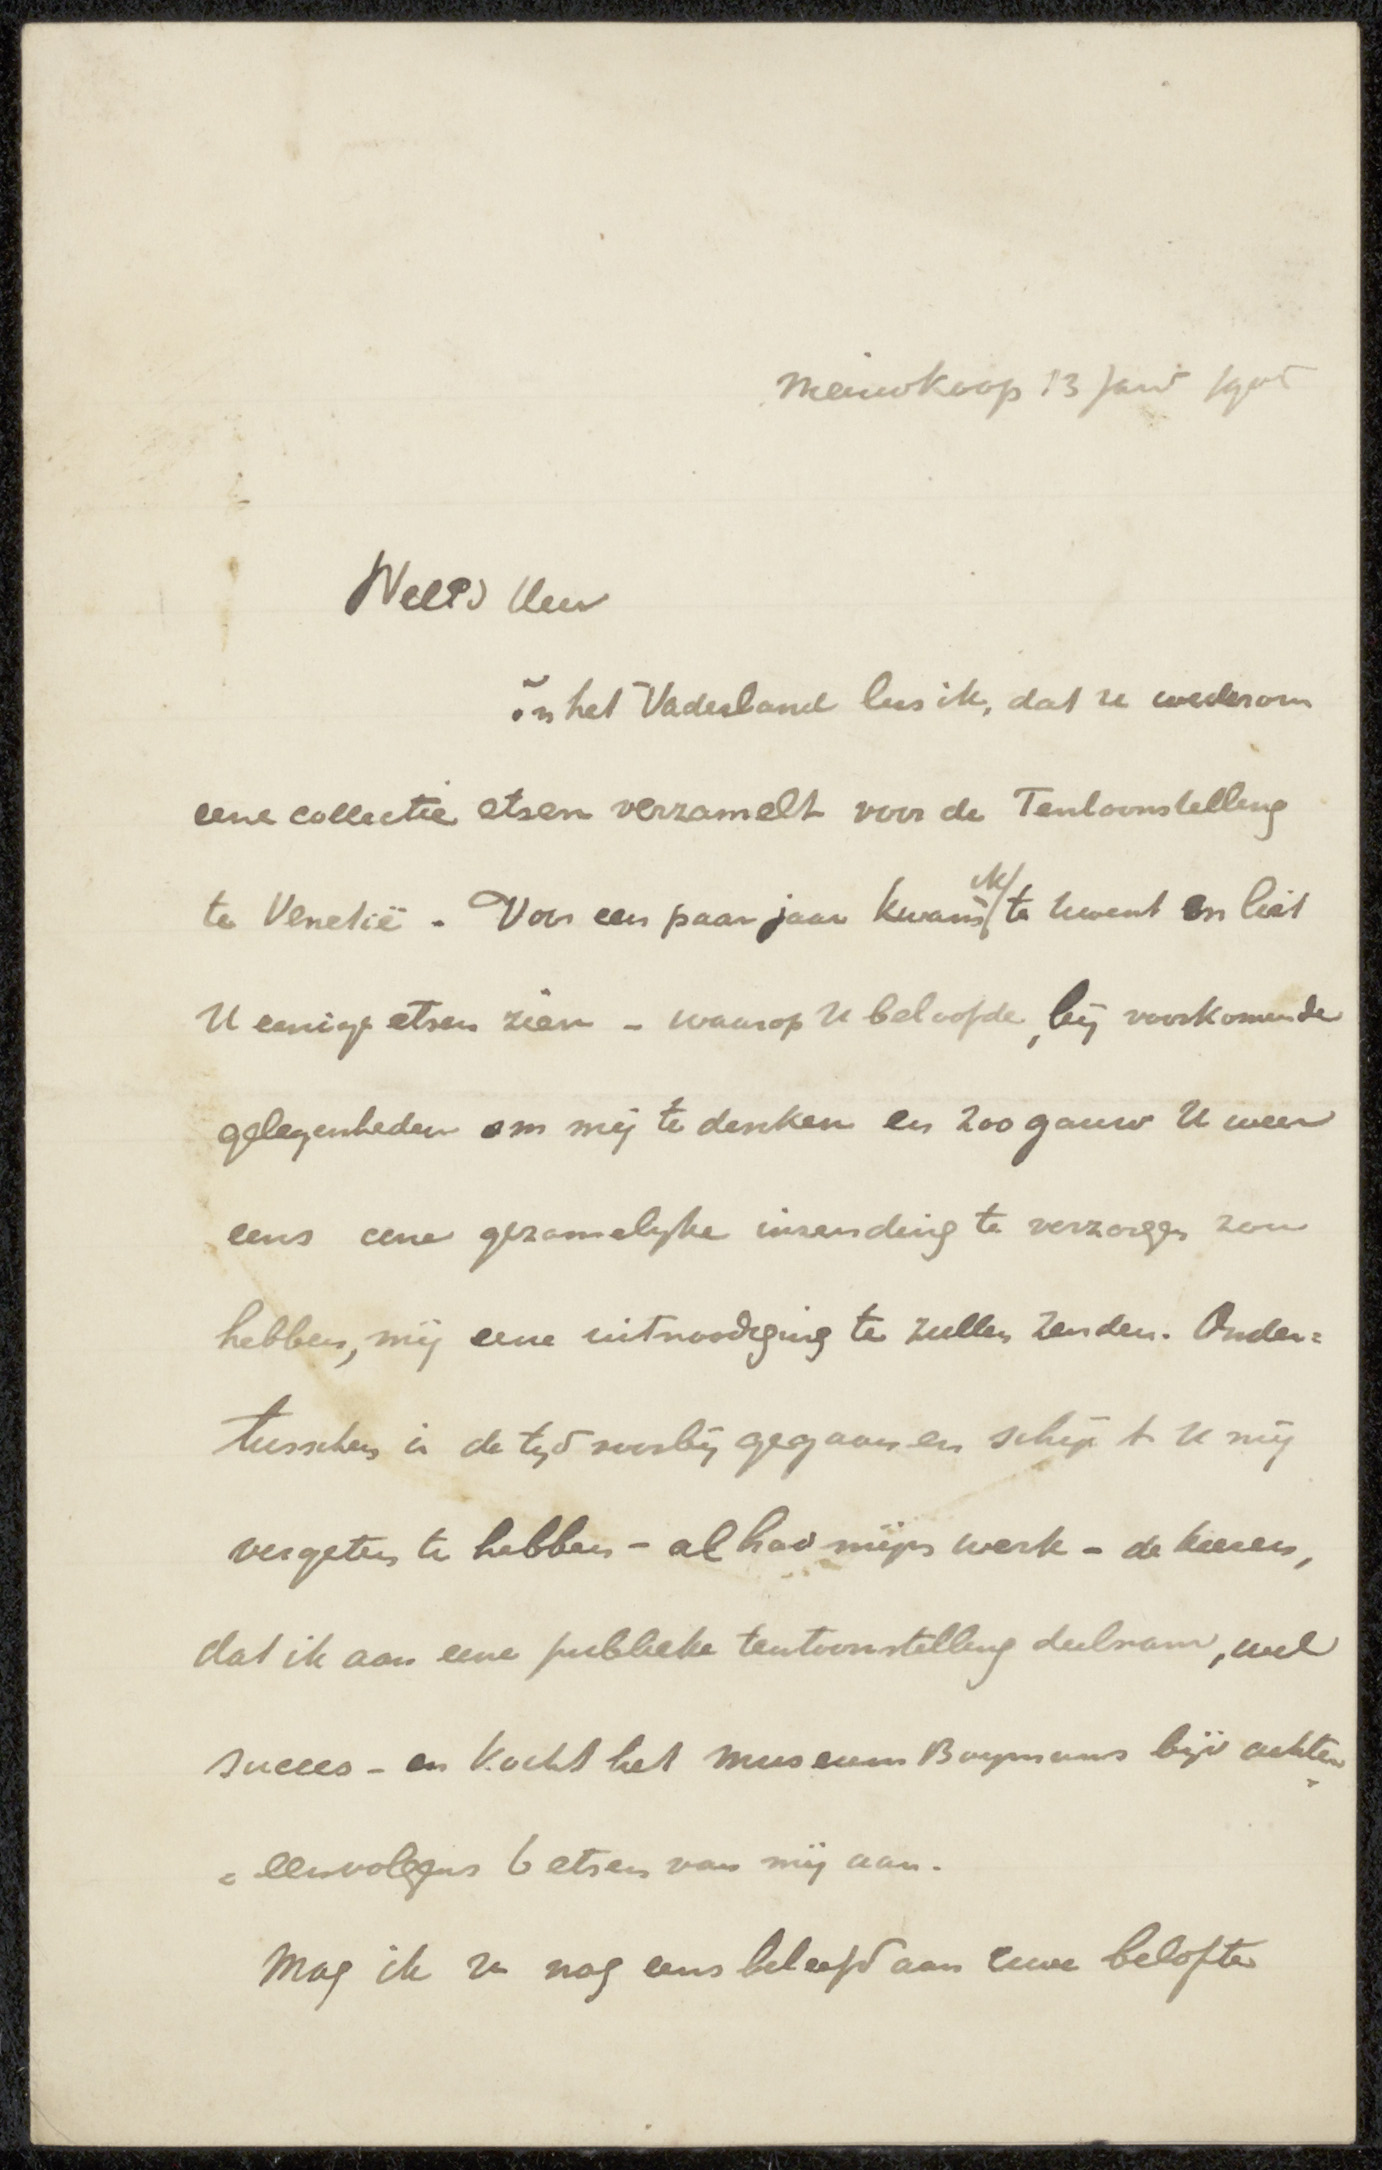 Nieuwkoop 13 Janr 1905
WelEd Heer
in het Vaderland las ik, dat U wederom
eene collectie etsen verzamelt voor de Tentoonstelling
te Venetië - Voor een paar jaar kwam ik te Uwent en liet
U eenige etsen zien - waarop U beloofde, bij voorkomende
gelegenheden om mij te denken en zoo gauw U weer
eens eene gezamelyke inzending te verzorgen zou
hebben, mij eene uitnoodiging te zullen zenden. Onder=
tusschen is de tyd voorbij gegaan en schijnt U mij
vergeten te hebben - al had mijn werk - de keeren,
dat ik aan eene publieke tentoonstelling deelnam, wel
succes - en kocht het Museum Boymans bijv achter=
=eenvolgens 6 etsen van mij aan.
Mag ik U nog eens beleefd aan Uwe belofte